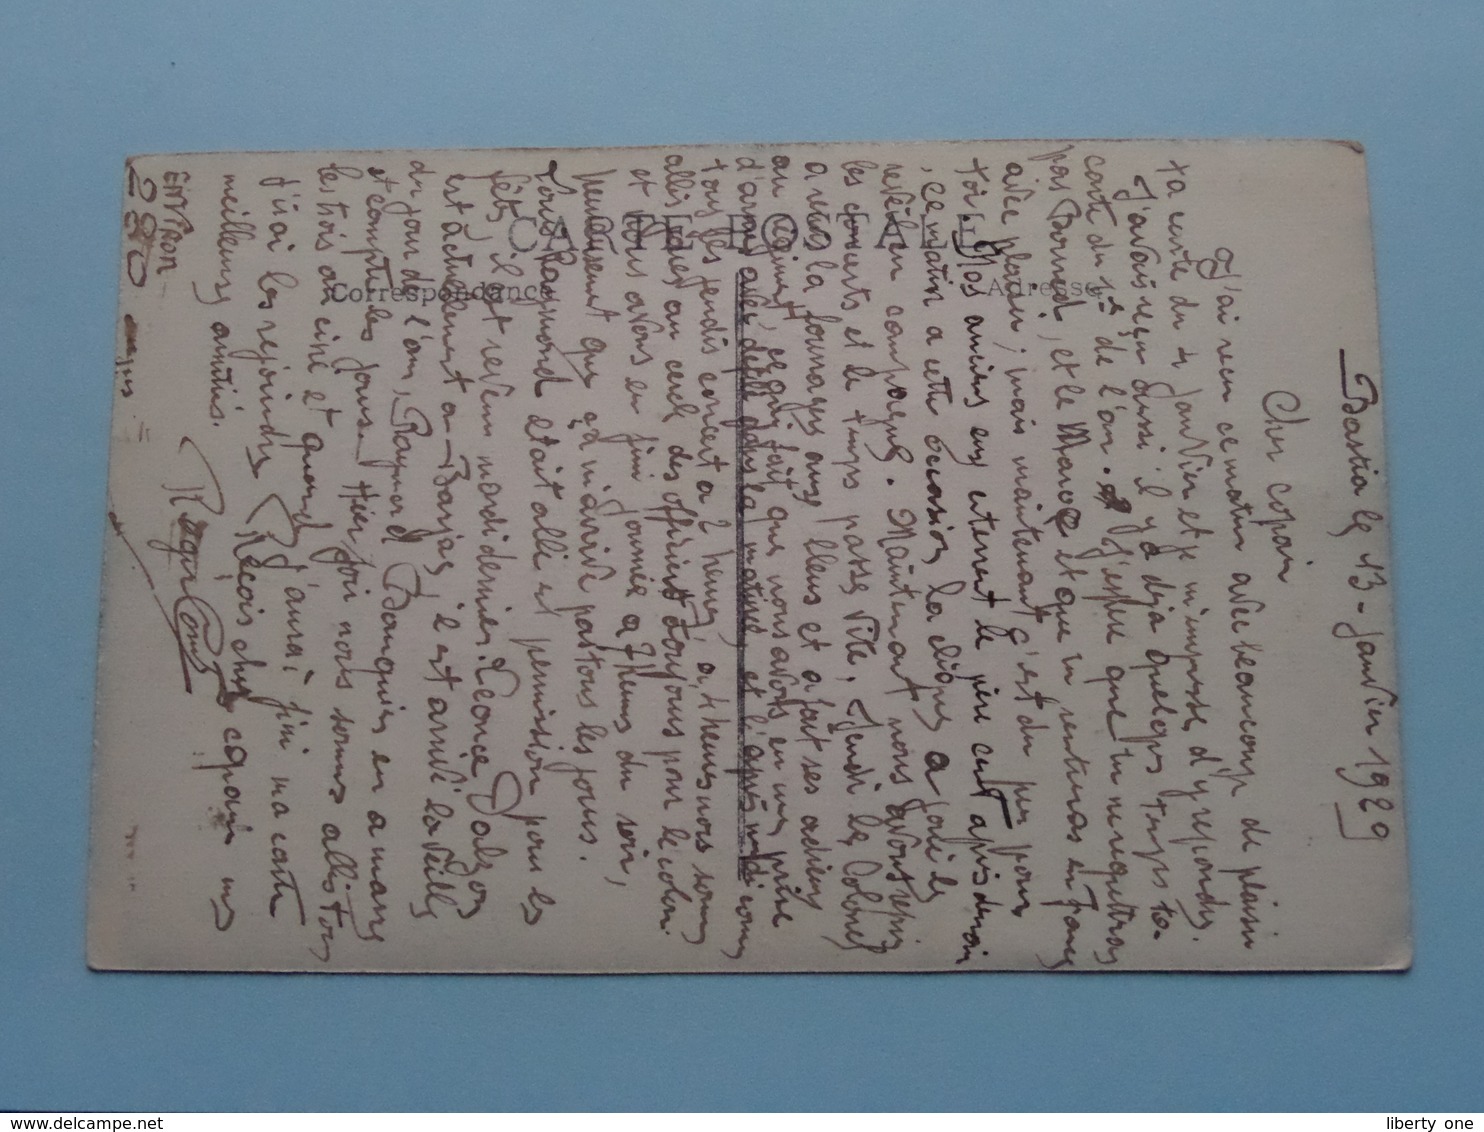 Bastia le 13 - Janvier 1929
Cher copain
J'ai reçu ce matin avec beaucoup de plaisir
ta carte du 4 Janvier et je m'empresse d'y répondre.
J'avais reçu aussi il y a déjà quelques temps ta
carte du 1er de l'an. J'espère que tu ne quitteras
pas et le Maroc et que tu rentreras en France
avec plaisir ; mais maintenant c'est du peu pour
toi. Nos anciens enterrent le père cent après demain
, ce matin a cette occasion la clique a joué le
réveil en campagne. Maintenant nous avons repris
les concerts et le temps passe vite. Jeudi le Colonel
a reçu la fourragère aux lieus et a fait ses adieux
au régiment, ce qui fait que nous avons eu une prise
d'armes avec défilé dans la matinée et l'après midi comme
tous les jeudis concert a 2 heures, a 4 heures nous sommes
allés au cercle des officiers toujours pour le colonel
et nous avons eu fini journée a 7 heures du soir,
heureusement que ça n'arrive pas tous les jours.
Louis Raymond était allé en permission pour les
fêtes il est revenu mardi dernier. Léonce Dalzon
est actuellement a Barjac, il est arrivé la veille
du jour de l'an, Raymond Banquier en a marre
et compte les jours. Hier soir nous sommes allés tous
les trois au ciné et quand j'aurai fini ma carte
j'irai les rejoindre. Reçois cher copain mes
meilleurs amitiés.
Roger
ENVIRON
280
CARTE POSTALE
Correspondance
Adresse
liberty one